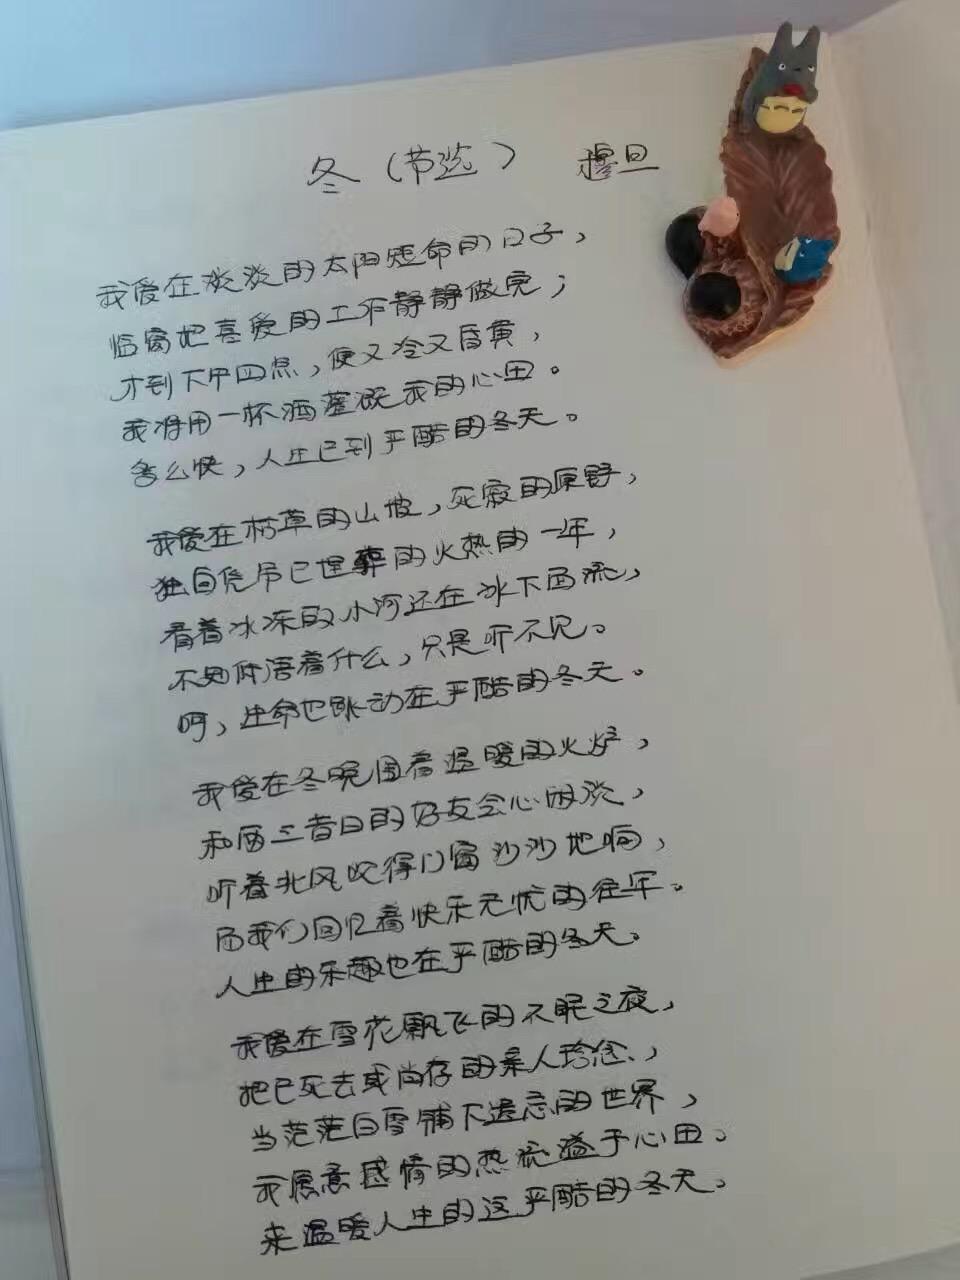 冬（节选） 穆旦
我爱在淡淡的太阳短命的日子，
临窗把喜爱的工作静静做完；
才到下午四点，便又冷又昏黄，
我将用一杯酒灌溉我的心田。
多么快，人生已到严酷的冬天。
我爱在枯草的山坡，死寂的原野，
独自凭吊已埋葬的火热的一年，
看着冰冻的小河还在冰下面流，
不知低语着什么，只是听不见。
呵，生命也跳动在严酷的冬天。
我爱在冬晚围着温暖的火炉，
和两三昔日的好友会心闲谈，
听着北风吹得门窗沙沙地响，
而我们回忆着快乐无忧的往年。
人生的乐趣也在严酷的冬天。
我爱在雪花飘飞的不眠之夜，
把已死去或尚存的亲人珍念，
当茫茫白雪铺下遗忘的世界，
我愿意感情的热流溢于心田，
来温暖人生的这严酷的冬天。